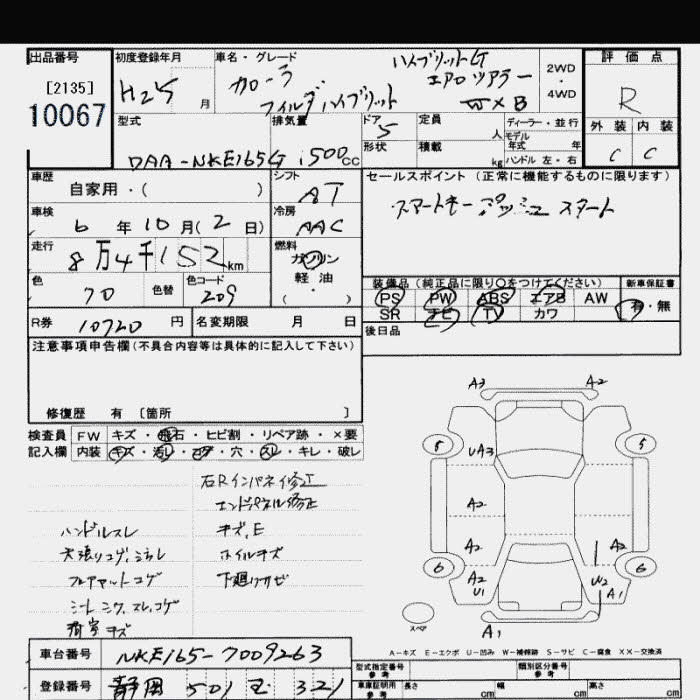 出品番号
[2135]
10067
初度登録年月
H25 月
車名・グレード
カローラ
フィルダーハイブリット
ハイブリットG
エアロツアラー
W×B
2WD
・
4WD
評価点
R
外装 内装
C C
型式
DAA-NKE165G
排気量
1500cc
ドア
5
形状
定員
人
積載
kg
ディーラー・並行
モデル
年式 年
ハンドル 左・右
車歴
自家用・( )
シフト
AT
セールスポイント (正常に機能するものに限ります)
スマートキー プッシュスタート
車検
6年10月(2日)
冷房
AAC
走行
8万4千152km
燃料
ガソリン
軽油
・
( )
色
70
色替
色コード
209
装備品 (純正品に限り○をつけてください)
新車保証書
PS PW ABS エアB AW
SR ナビ TV カワ
有・無
R券
10720円
名変期限 月 日
後日品
注意事項申告欄 (不具合内容等は具体的に記入して下さい)
修復歴 有 [箇所 ]
検査員
記入欄
FW キズ・飛石・ヒビ割・リペア跡・×要
内装 キズ・汚レ・コゲ・穴・スレ・キレ・破レ
右Rインパネ修正
エンドパネル修正
ハンドルスレ
キズ,E
天張りコゲ,シミレ
ホイルキズ
フロアマットコゲ
下廻りサビ
シートシワ,スレ,コゲ
荷室キズ
A3 A2
5 5
UA3
A2
A2 A2
6 6
A2 U1
W2 A1
スペア
A1
A-キズ E-エクボ U-凹み W-補修跡 S-サビ C-腐食 XX-交換済
車台番号
NKE165-7009263
登録番号
静岡 501 そ 321
型式指定番号
参考
類別区分番号
参考
車庫証明用
参考
長さ cm
幅 cm
高さ cm